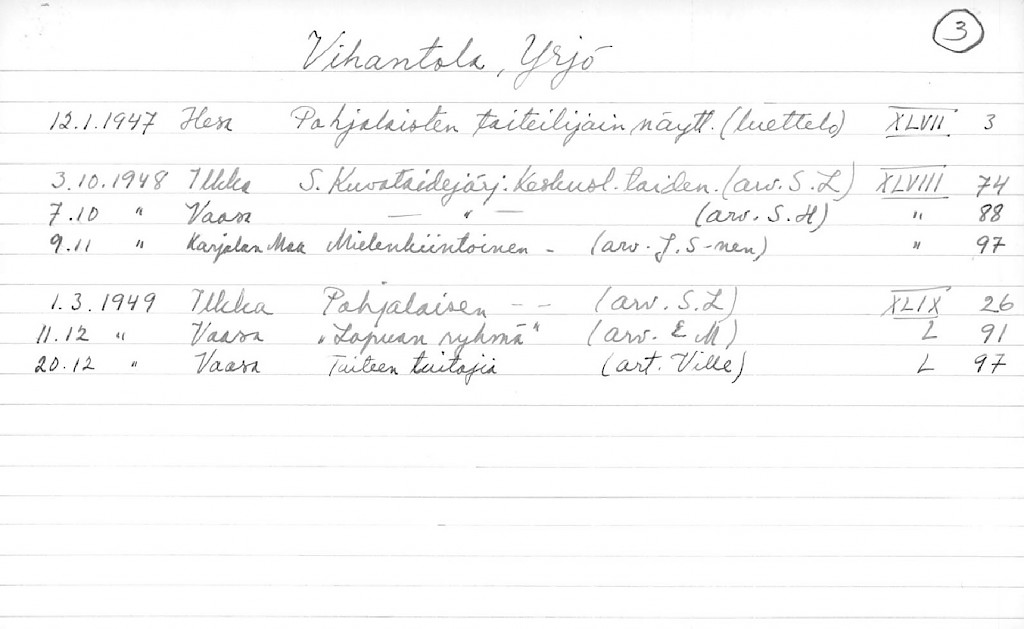 3
Vihantola, Yrjö
12.1.1947 Hesa Pohjalaisten taiteilijain näytt. (luettelo) XLVII 3
3.10.1948 Ilkka S. Kuvataidejärj. Keskusl. taiden. (arv. S. L) XLVIII 74
7.10 " Vaasa — " — (arv. S. H) " 88
9.11 " Karjalan Maa Mielenkiintoinen - (arv. J. S-nen) " 97
1.3.1949 Ilkka Pohjalaisen - - (arv. S. L) XLIX 26
11.12 " Vaasa "Lapuan ryhmä" (arv. E M) L 91
20.12 " Vaasa Taiteen taitajia (art. Ville) L 97